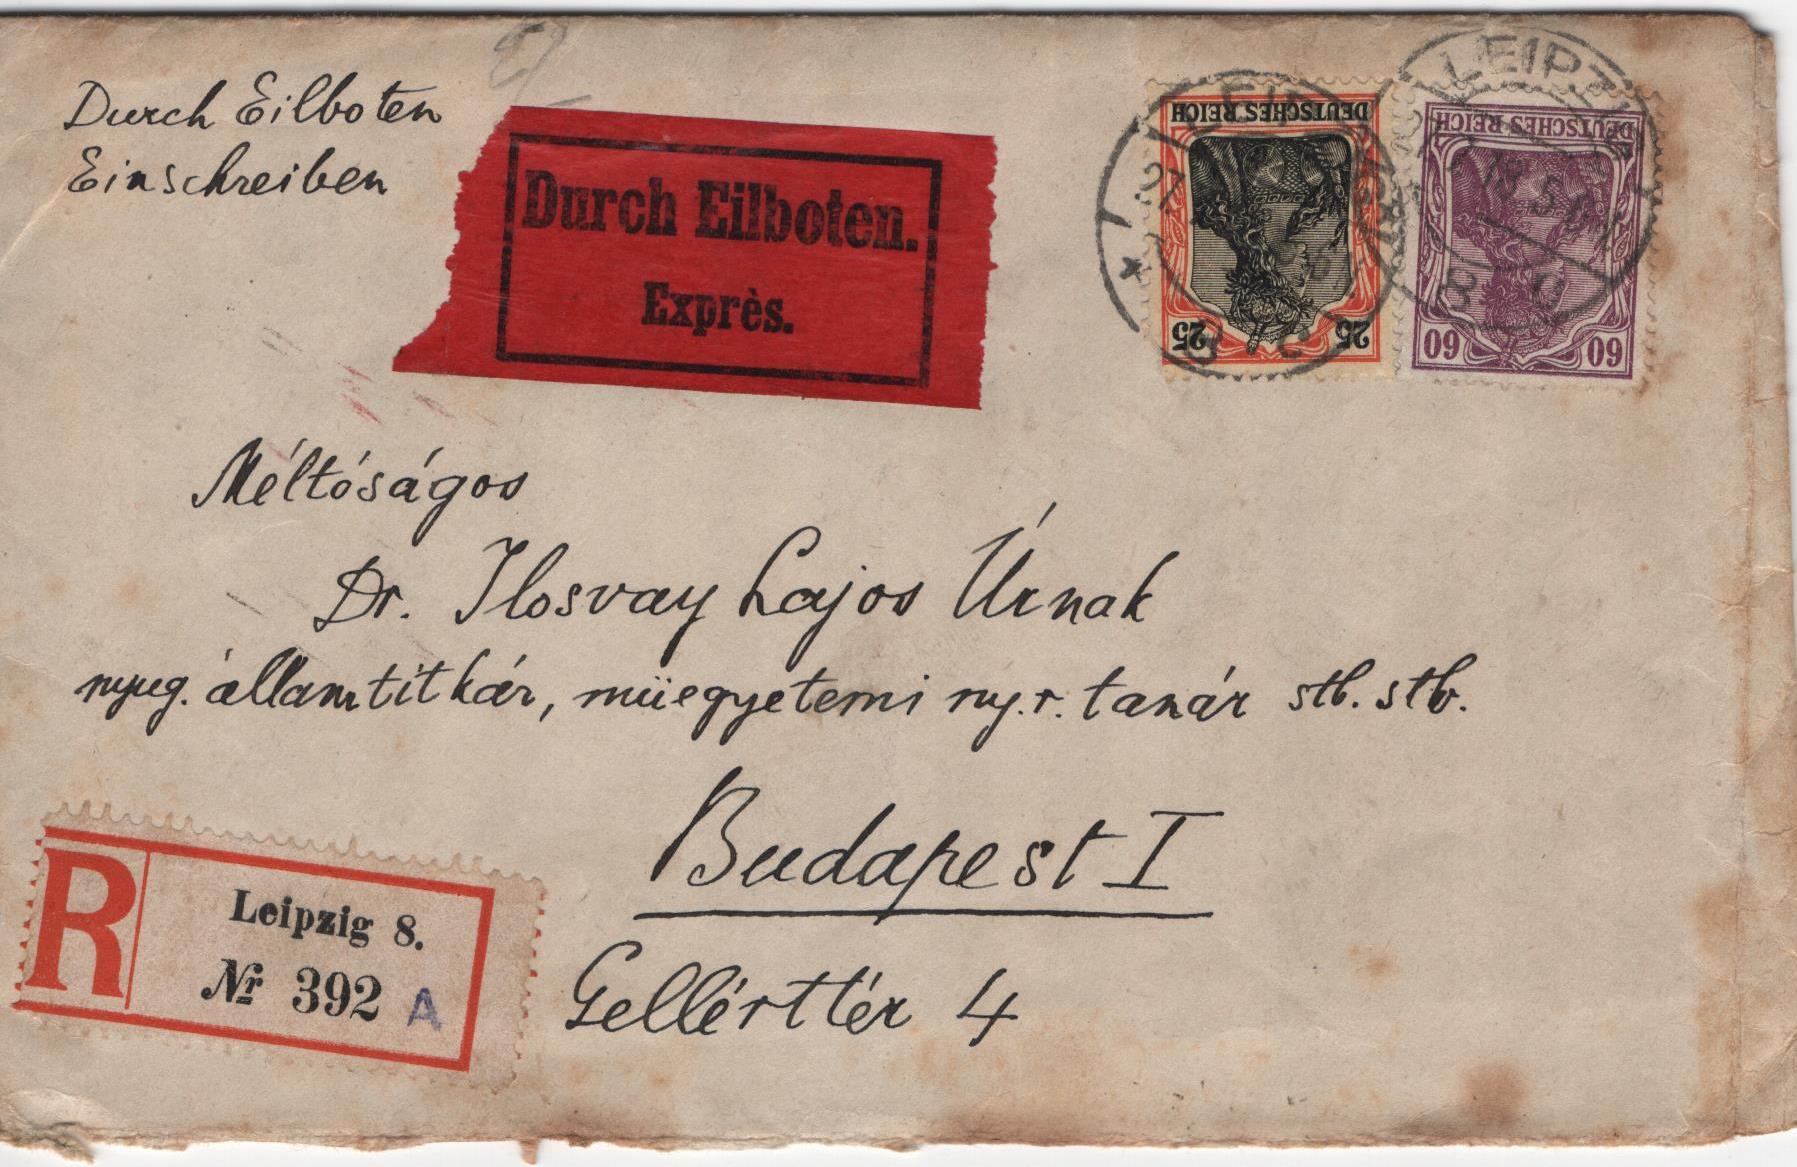 Durch Eilboten
Einschreiben
Durch Eilboten.
Exprès.
DEUTSCHES REICH
25 25
DEUTSCHES REICH
60 60
LEIPZIG
Méltóságos
Dr. Ilosvay Lajos Úrnak
nyug. államtitkár, müegyetemi ny. r. tanár stb. stb.
Budapest I
Gellérttér 4
R
Leipzig 8.
Nr 392 A